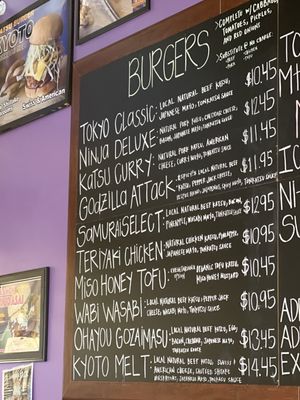 KYOTO
Swiss & American
BURGERS
*COMPLETE W/ CABBAGE,
TOMATOES, PICKLES,
AND RED ONIONS
SUBSTITUTE @ NO CHARGE:
TOKYO CLASSIC: LOCAL NATURAL BEEF KATSU, $10.45
JAPANESE MAYO, TONKATSU SAUCE
NINJA DELUXE: NATURAL PORK KATSU, CHEDDAR CHEESE, $12.45
BACON, JAPANESE MAYO, TONKATSU SAUCE
KATSU CURRY: NATURAL PORK KATSU, AMERICAN $11.45
CHEESE, CURRY MAYO, TONKATSU SAUCE
GODZILLA ATTACK: LOCAL NATURAL BEEF $11.95
KATSU, PEPPER JACK CHEESE,
SAMURAI SELECT: LOCAL NATURAL BEEF KATSU, BACON, $12.95
PINEAPPLE, WASABI MAYO, TONKATSU SAUCE
TERIYAKI CHICKEN: NATURAL CHICKEN KATSU, PINEAPPLE, $10.95
JAPANESE MAYO, TONKATSU SAUCE
MISO HONEY TOFU: ORGANIC TOFU KATSU, $10.45
MISO HONEY MUSTARD
WABI WASABI: LOCAL NATURAL BEEF KATSU, PEPPER JACK $10.95
CHEESE, WASABI MAYO, TONKATSU SAUCE
OHAYOU GOZAIMASU: LOCAL NATURAL BEEF KATSU, EGG, $13.45
BACON, CHEDDAR, JAPANESE MAYO,
TONKATSU SAUCE
KYOTO MELT: LOCAL NATURAL BEEF KATSU, SWISS & $14.45
AMERICAN CHEESE, SAUTEED SHIITAKE
MUSHROOMS, JAPANESE MAYO, TONKATSU SAUCE